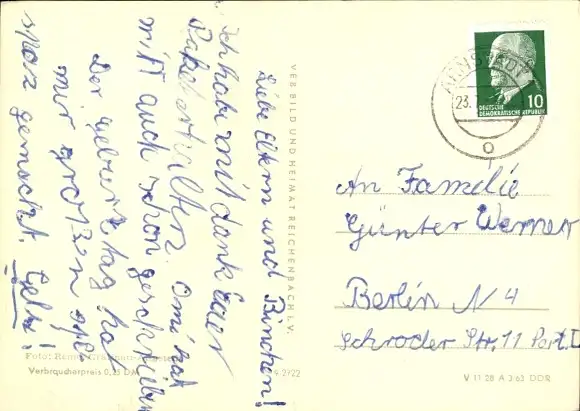 Liebe Eltern und Binchen!
Ich habe mit dank Euer
Paket erhalten. Omi hat
mir auch schon geschrieben
Der geburtztag hat
mir großen
spaz gemacht.
VEB BILD UND HEIMAT REICHENBACH I. V.
Foto:
Verbraucherpreis 0,25 DM
ARNSTADT
23.
DEUTSCHE
DEMOKRATISCHE REPUBLIK
10
An Familie
Günter Werner
Berlin N 4
Schroder Str. 11 Part. I
V 11 28 A 3/63 DDR